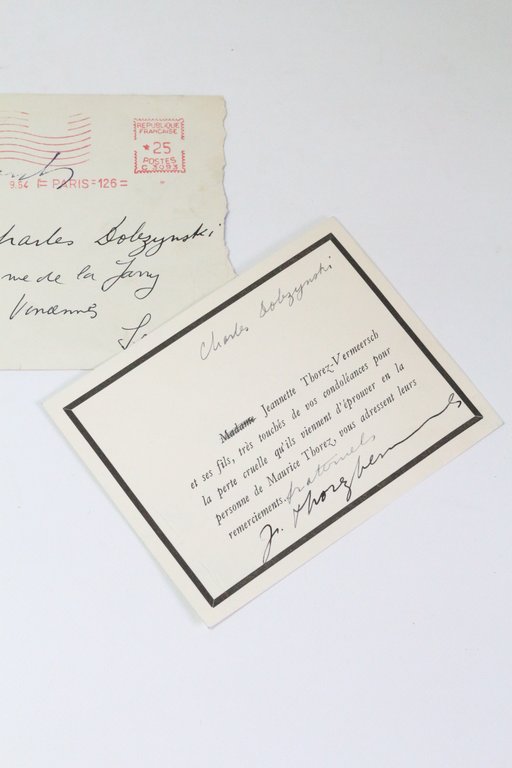 REPUBLIQUE
FRANCAISE
*25
POSTES
C 3093
9.64 PARIS-126
Charles Dobzynski
rue de la Jarry
Vincennes
Charles Dobzynski
Madame Jeannette Thorez-Vermeersch
et ses fils, très touchés de vos condoléances pour
la perte cruelle qu'ils viennent d'éprouver en la
personne de Maurice Thorez, vous adressent leurs
remerciements. fraternels
J. Thorez Vermeersch